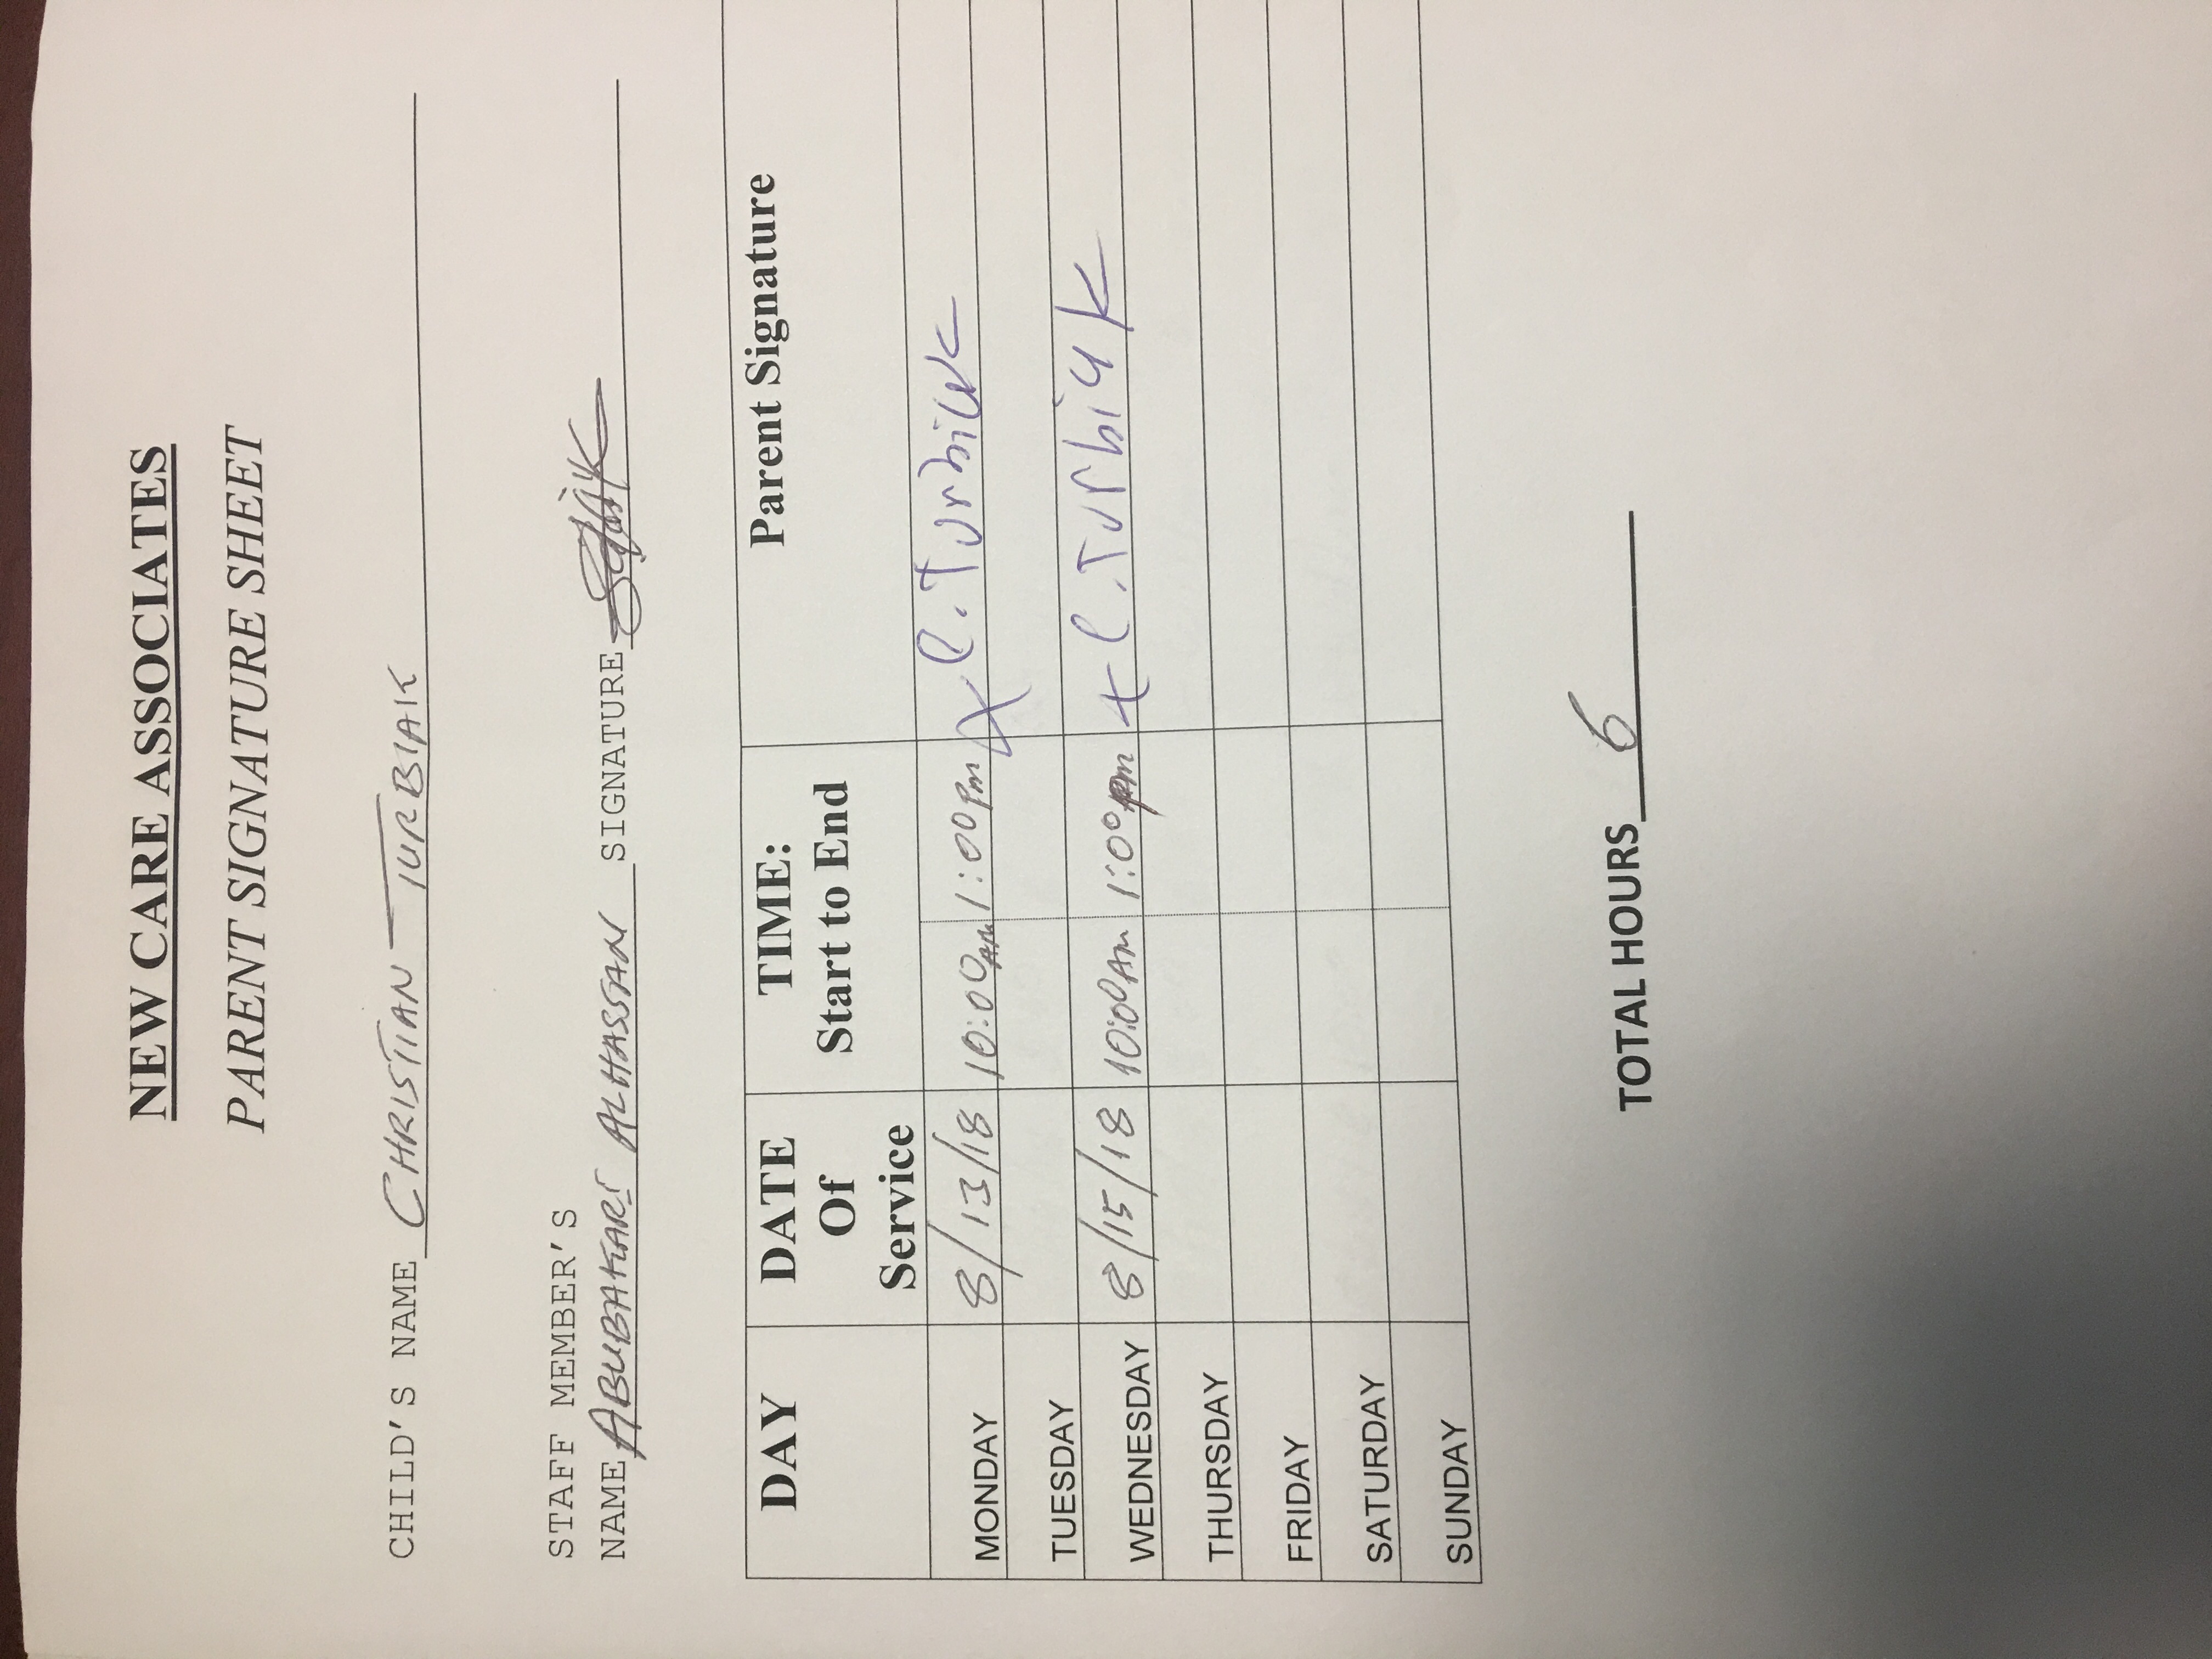 NEW CARE ASSOCIATES
PARENT SIGNATURE SHEET
CHILD'S NAME CHRISTIAN TURBIAK
STAFF MEMBER'S
NAME ABUBAKARI ALHASSAN SIGNATURE
DAY DATE Of Service TIME: Start to End Parent Signature
MONDAY 8/13/18 10:00AM 1:00pm C. Turbiak
TUESDAY
WEDNESDAY 8/15/18 10:00AM 1:00pm C. Turbiak
THURSDAY
FRIDAY
SATURDAY
SUNDAY
TOTAL HOURS 6